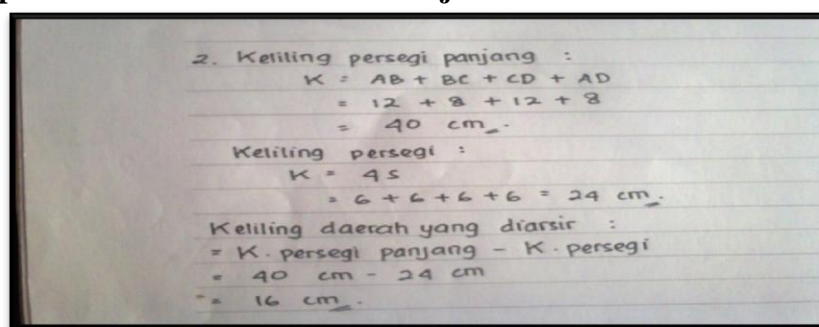 2. Keliling persegi panjang :
K = AB + BC + CD + AD
= 12 + 8 + 12 + 8
= 40 cm.
Keliling persegi :
K = 4s
= 6 + 6 + 6 + 6 = 24 cm.
Keliling daerah yang diarsir :
= K. persegi panjang - K. persegi
= 40 cm - 24 cm
= 16 cm.